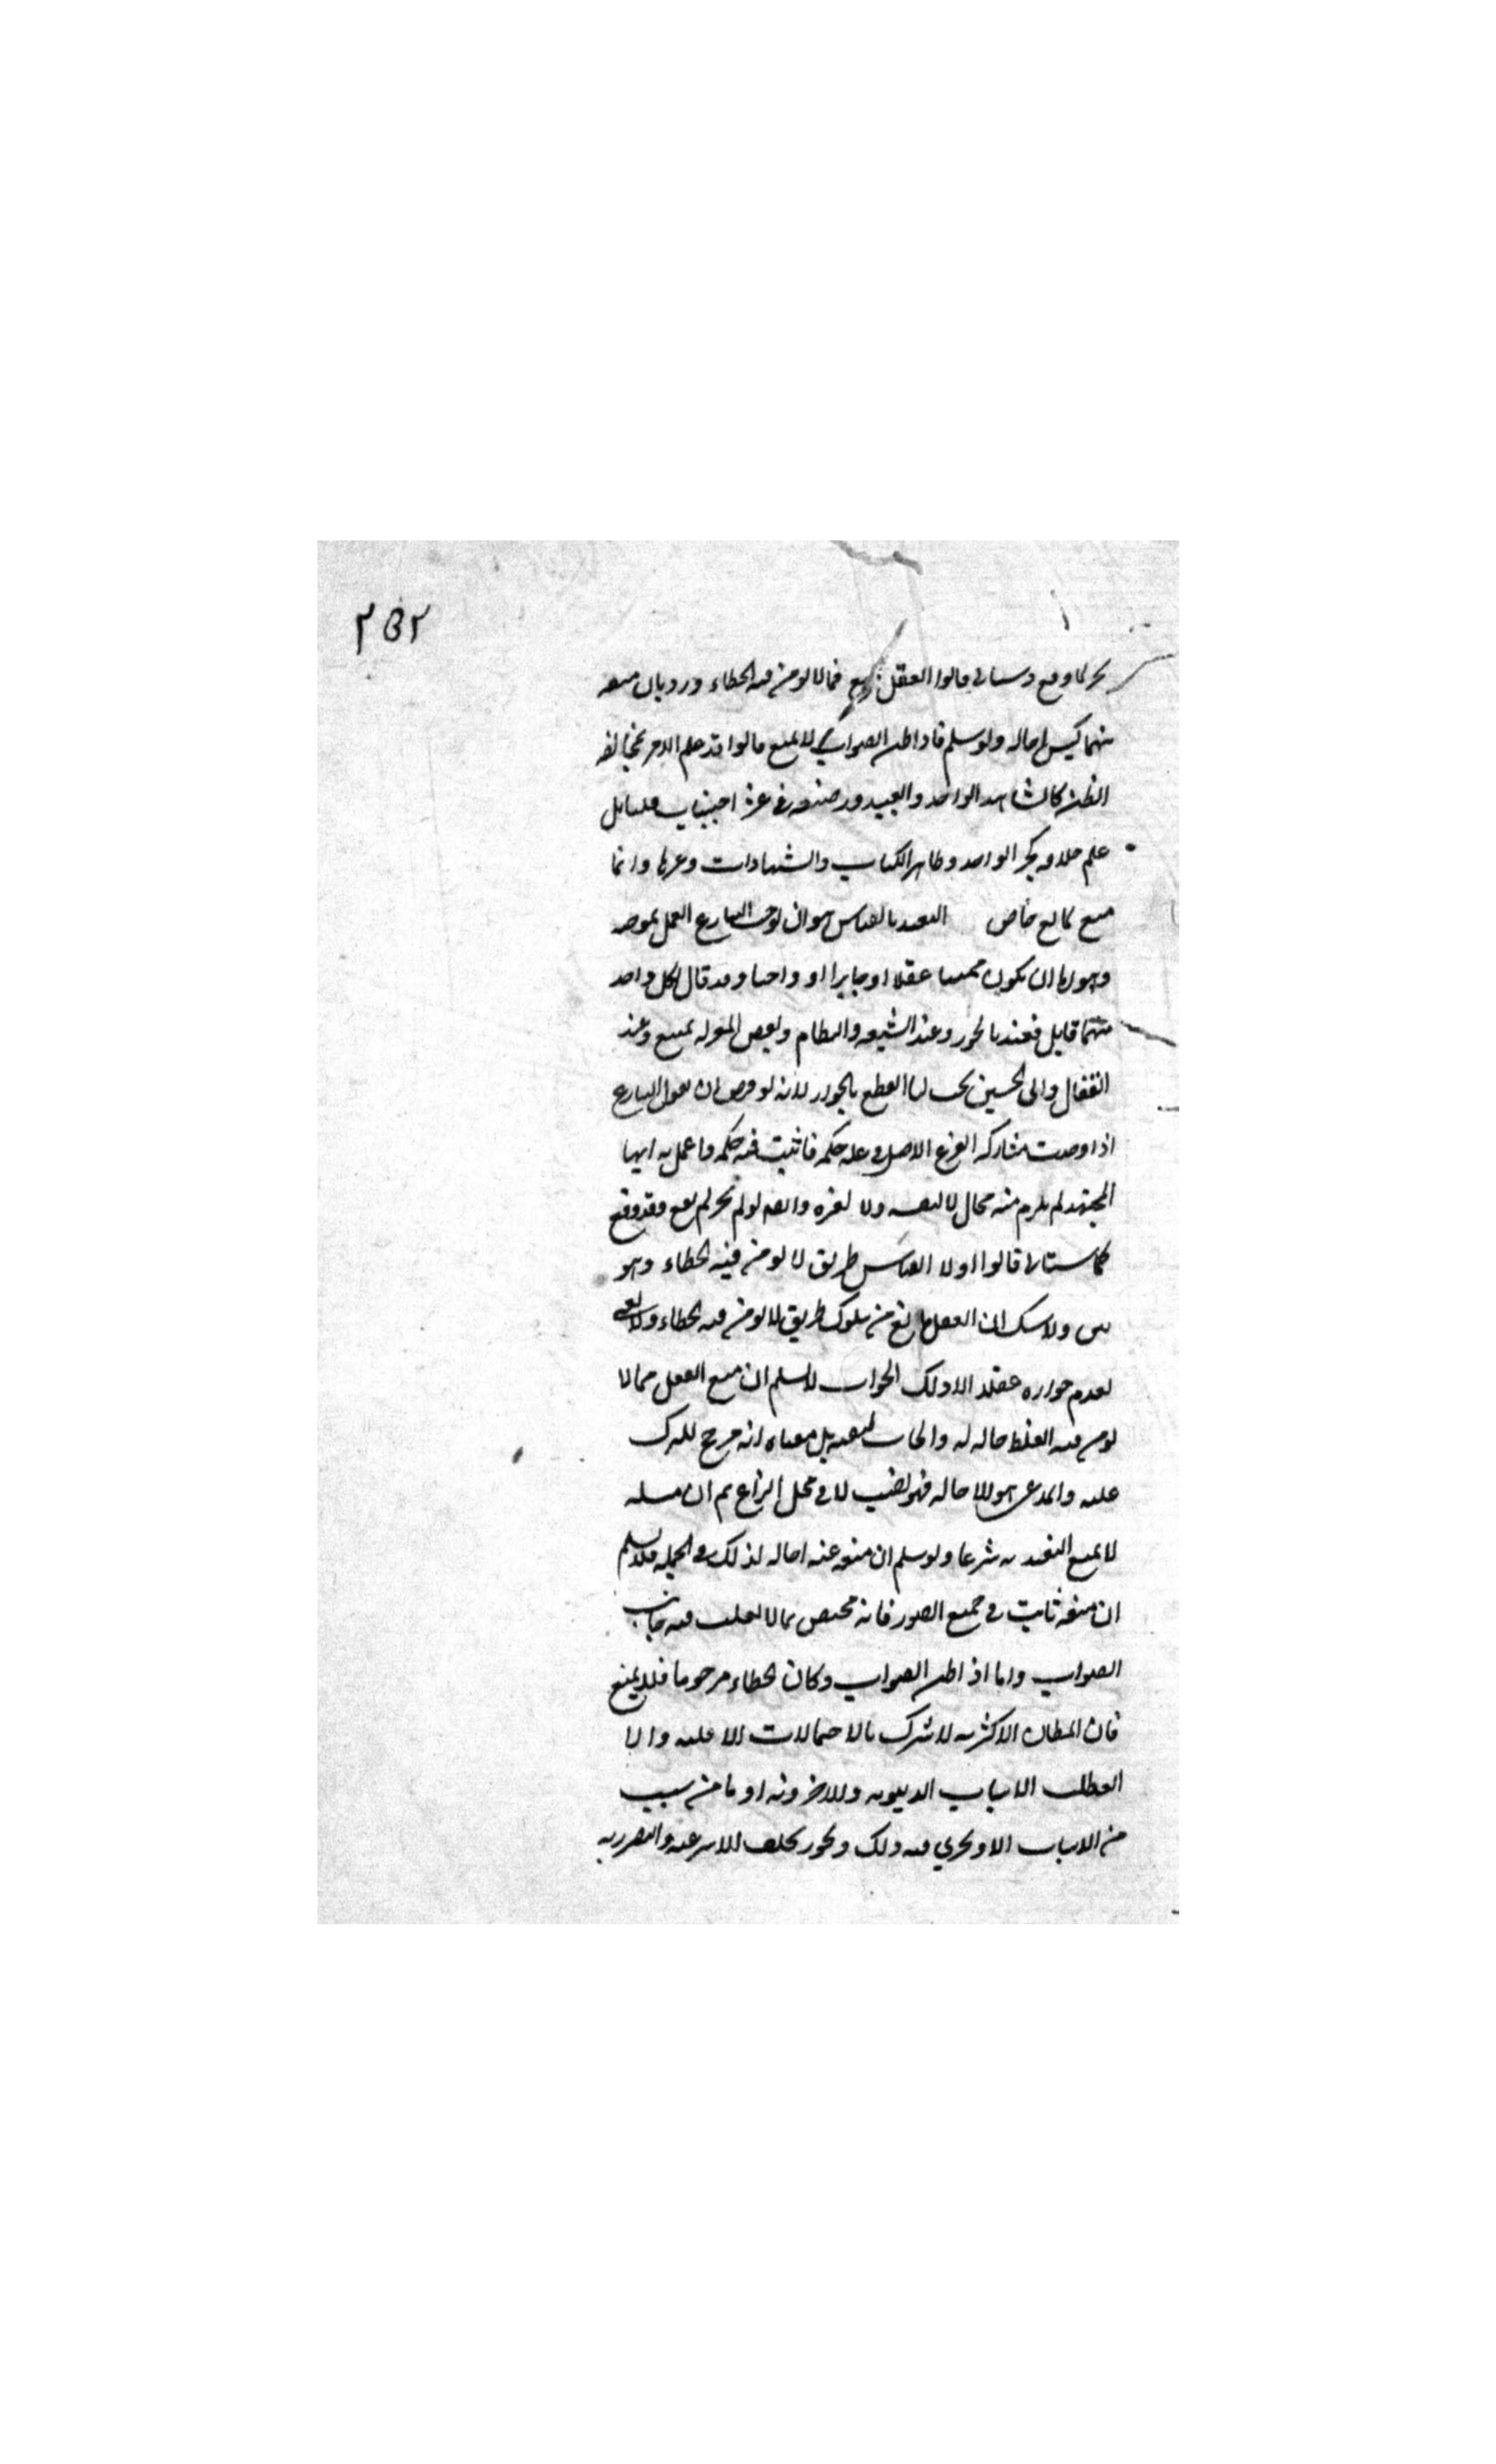 ٣٥٢
يجز لما وقع وسيأتي قالوا العقل يمنع فيما لا يؤمن فيه الخطاء ورد بأن منعه
منهما ليس إحالة ولو سلم فإذا ظن الصواب لا يمنع قالوا قد علم الأمر بمخالفة
الظن كالشاهد الواحد والعبيد ورضيعة في عشر أجنبيات قلنا بل
علم خلافه كخبر الواحد وظاهر الكتاب والشهادات وغيرها وإنما
منع لمانع خاص التعبد بالقياس هو أن يوجب الشارع العمل بموجبه
وهو إما أن يكون ممتنعا عقلا أو جايزا أو واجبا وقد قال بكل واحد
منهما قايل فعندنا يجوز وعند الشيعة والنظام وبعض المعتزلة يمتنع وعند
القفال وأبي الحسين يجب لنا القطع بالجواز لأنه لو فرض أن يقول الشارع
إذا وجدت مشاركة الفرع الأصل في علة حكمه فاثبت فيه حكمه واعمل به أيها
المجتهد لم يلزم منه محال لا لنفسه ولا لغيره وأيضا لو لم يجز لم يقع وقد وقع
كما ستأتي قالوا أولا القياس طريق لا يؤمن فيه الخطاء وهو
بين ولا شك أن العقل مانع من سلوك طريق لا يؤمن فيه الخطاء ولا نعني
بعدم جوازه عقلا إلا ذلك الجواب لا نسلم أن منع العقل مما لا
يؤمن فيه الغلط إحالة له وإيجاب لنفيه بل معناه أنه مرجح للترك
عليه والمدعى هو الإحالة فهو نصب لا في محل النزاع ثم إن مثله
لا يمنع التعبد به شرعا ولو سلم أن منعه عنه إحالة لذلك في الجملة فلا نسلم
أن منعه ثابت في جميع الصور فإنه مختص بما لا يغلب فيه جانب
الصواب وأما إذا ظن الصواب وكان الخطاء مرجوحا فلا يمنع
فإن المظان الأكثرية لا تترك بالاحتمالات الأقلية وإلا
لتعطلت الأسباب الدنيوية والأخروية إذ ما من سبب
من الأسباب إلا ويجري فيه ذلك ويجوز تخلف الأثر عنه والتضرر به